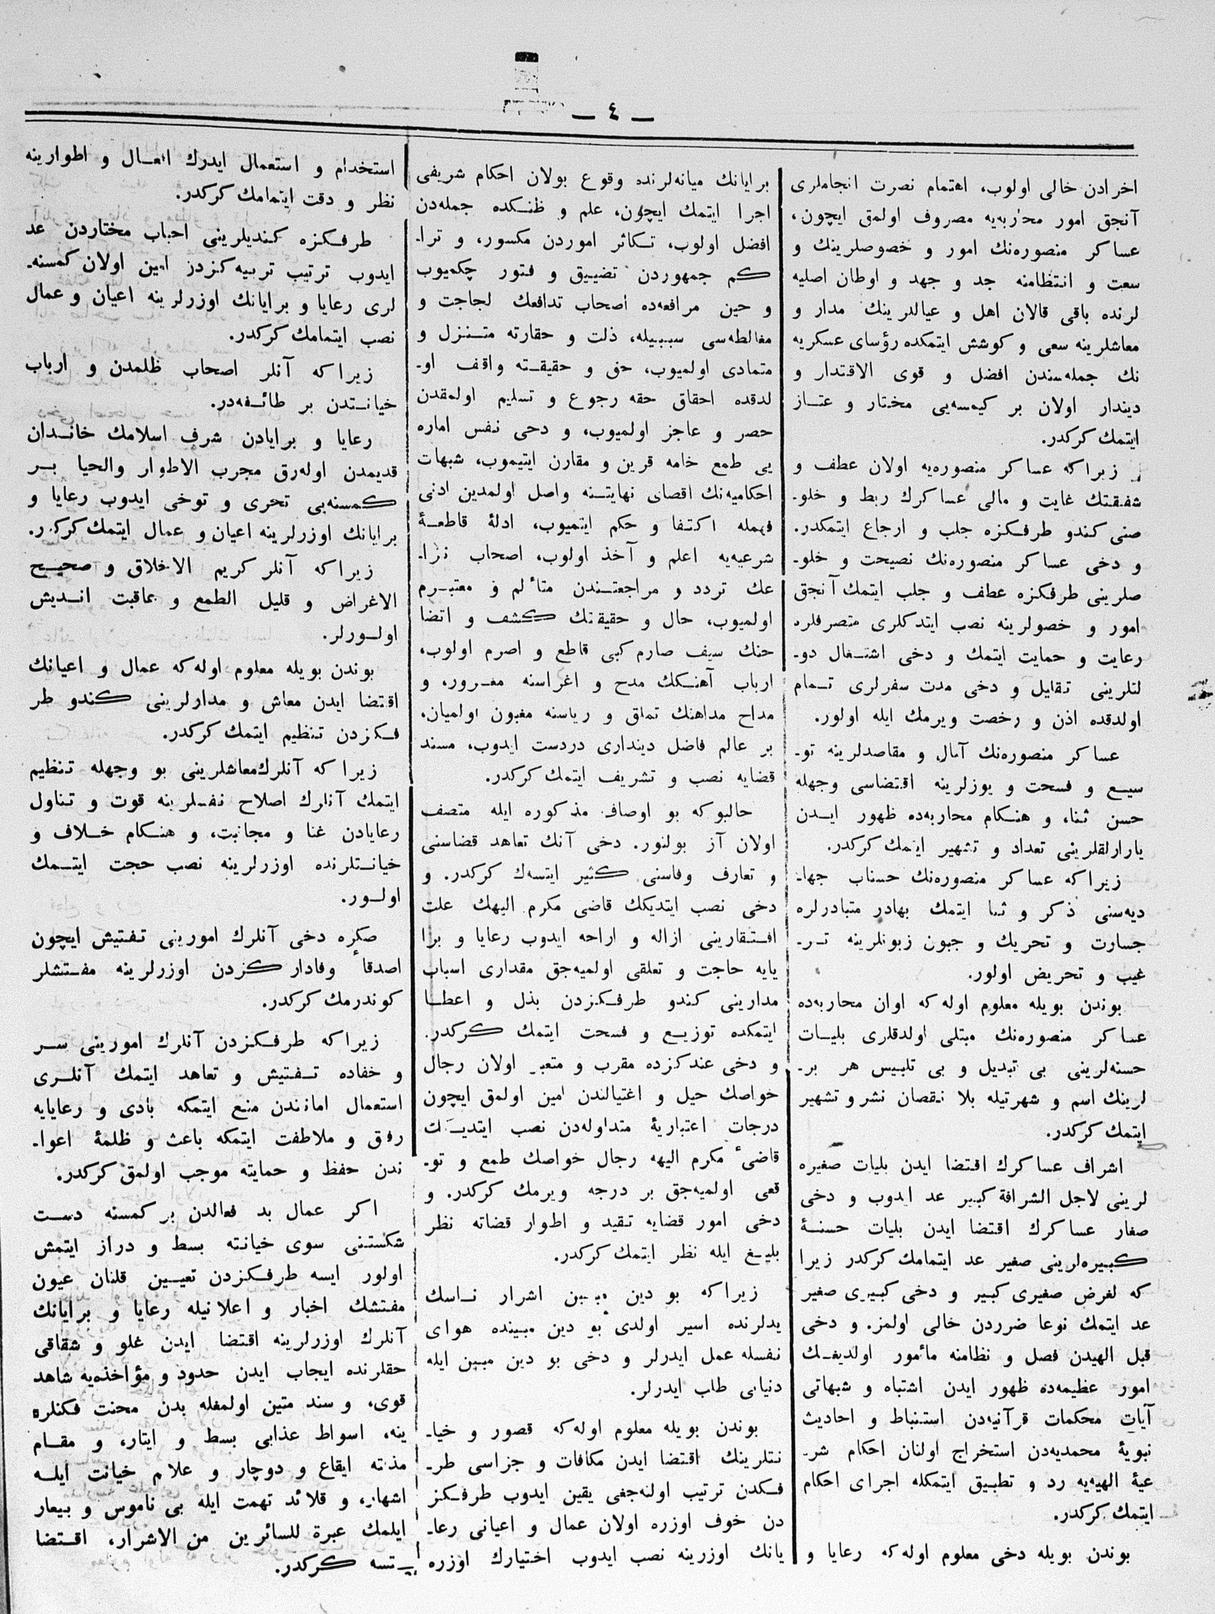 — ٤ —
اخرادن خالی اولوب، اهتمام نصرت انجاملری
آنجق امور محاربه‌یه مصروف اولمق ایچون،
عساکر منصوره‌نك امور و خصوصلرینك و
سعت و انتظامنه جد و جهد و اوطان اصلیه
لرنده باقی قالان اهل و عیاللرینك مدار و
معاشلرینه سعی و کوشش ایتمکده رؤسای عسکریه
نك جمله‌سندن افضل و قوی الاقتدار و
دیندار اولان بر کیمسه‌یی مختار و عتـاز
ایتمك کرکدر.
زیرا که عساکر منصوره‌یه اولان عطف و
شفقتك غایت و مالی عساکرك ربط و خلو۔
صنی کندو طرفکزه جلب و ارجاع ایتمکدر.
و دخی عساکر منصوره‌نك نصیحت و خلو۔
صلرینی طرفکزه عطف و جلب ایتمك آنجق
امور و خصولرینه نصب ایتدکلری متصرفلره
رعایت و حمایت ایتمك و دخی اشتـغال دو۔
لتلرینی تقلیل و دخی مدت سفرلری تـمام
اولدقده اذن و رخصت ویرمك ایله اولور.
عساکر منصوره‌نك آمال و مقاصدلرینه تو۔
سیـع و فسحت و یوزلرینه اقتضاسی وجهله
حسن ثنا، و هنـکام محاربه‌ده ظهور ایـدن
یارارلقلرینی تعداد و تشهیر ایتمك کرکدر.
زیرا که عساکر منصوره‌نك حسناب جها۔
دیه‌سنی ذکر و ثنا ایتمك بهادر متبادرلره
جسارت و تحریك و جبون زبونلرینه تـر۔
غیب و تحریض اولور.
بوندن بویله معلوم اوله که اوان محاربه‌ده
عساکر منصوره‌نك مبتلی اولدقلری بلیـات
حسنه‌لرینی بی تبدیل و بی تلبیـس هر بر۔
لرینك اسم و شهرتیله بلا نقصان نشر و تشهیر
ایتمك کرکدر.
اشراف عساکرك اقتضا ایدن بلیات صغیره
لرینی لاجل الشرافة کبیر عد ایدوب و دخی
صغار عساکرك اقتضا ایدن بلیات حسنـۀ
کبیره‌لرینی صغیر عد ایتمامك کرکدر زیرا
که لغرض صغیری کبیر و دخی کبیری صغیر
عد ایتمك نوعا ضرردن خالی اولمز. و دخی
قبل الهیدن فصل و نظامنه مأمور اولدیغـك
امور عظیمه‌ده ظهور ایدن اشتباه و شبهاتی
آیات محکمات قرآنیه‌دن استنباط و احادیث
نبویۀ محمدیه‌دن استخراج اولنان احکام شر۔
عیۀ الهیه‌یه رد و تطبیق ایتمکله اجرای احکام
ایتمك کرکدر.
بوندن بویله دخی معلوم اوله که رعایا و
برایانك میانه‌لرنده وقوع بولان احکام شریفی
اجرا ایتمك ایچون، علم و ظنکده جمله‌دن
افضل اولوب، تکاثر اموردن مکسور، و ترا۔
کم جمهوردن تضییق و فتور چکمیوب
و حین مرافعه‌ده اصحاب تدافعك لجاجت و
مغالطه‌سی سببیله، ذلت و حقارته متـنزل و
متمادی اولمیوب، حق و حقیقـته واقف او۔
لدقده احقاق حقه رجوع و تسلیم اولمقدن
حصر و عاجز اولمیوب، و دخی نفس اماره
یی طمع خامه قرین و مقارن ایتیموب، شبهات
احکامیه‌نك اقصای نهایتـنه واصل اولمدین ادنی
فهمله اکتفا و حکم ایتمیوب، ادلۀ قاطعـۀ
شرعیه‌یه اعلم و آخذ اولوب، اصحاب نزا۔
عك تردد و مراجعتـندن متألم و معتبـرم
اولمیوب، حال و حقیقتك کشف و اتضا
حنك سیف صارم کبی قاطع و اصرم اولوب،
ارباب آهنـکك مدح و اغراسنه مغـرور، و
مداح مداهنك تملق و ریاسنه مغبون اولمیان،
بر عالم فاضل دینداری دردست ایدوب، مسند
قضایه نصب و تشریف ایتمك کرکدر.
حالبوکه بو اوصاف مذکوره ایله متصف
اولان آز بولنور. دخی آنك تعاهد قضاسنی
و تعارف وفاسنی کثیر ایتسه‌ك کرکدر. و
دخی نصب ایتدیکك قاضی مکرم الیهك علت
افتـقارینی ازاله و اراحه ایدوب رعایا و برا
یایه حاجت و تعلقی اولمیه‌جق مقداری اسباب
مدارینی کندو طرفکزدن بذل و اعطـا
ایتمکده توزیـع و فسحت ایتمك کرکدر.
و دخی عندکزده مقرب و متعبر اولان رجال
خواصك حیل و اغتیالندن امین اولمق ایچون
درجات اعتباریۀ متداوله‌دن نصب ایتدیـك
قاضئ مکرم الیهه رجال خواصك طمع و تو۔
قعی اولمیه‌جق بر درجه ویرمك کرکدر. و
دخی امور قضایه تقید و اطوار قضاته نظر
بلیـغ ایله نظر ایتمك کرکدر.
زیرا که بو دین مبین اشرار نـاسك
یدلرنده اسیر اولدی بو دین مبینده هوای
نفسله عمل ایدرلر و دخی بو دین مبین ایله
دنیایی طلب ایدرلر.
بوندن بویله معلوم اوله که قصور و خیا۔
نتلرینك اقتضا ایدن مکافات و جزاسی طر۔
فکدن ترتیب اولنه‌جغی یقین ایدوب طرفکز
دن خوف اوزره اولان عمال و اعیانی رعا۔
یانك اوزرینه نصب ایدوب اختیارك اوزره
استخدام و استعمال ایدرك افعـال و اطوارینه
نظر و دقت ایتمامك کرکدر.
طرفکزه کندیلرینی احباب مختاردن عد
ایدوب ترتیب تربیه کزدز امین اولان کمسنه۔
لری رعایا و برایانك اوزرلرینه اعیان و عمال
نصب ایتمامك کرکدر.
زیرا که آنلر اصحاب ظلمدن و ارباب
خیانتدن بر طائفه‌در.
رعایا و برایادن شرف اسلامك خانـدان
قدیمدن اوله‌رق مجرب الاطوار والحیا بـر
کمسنه‌یی تحری و توخی ایدوب رعایا و
برایانك اوزرلرینه اعیان و عمال ایتمك کرکدر.
زیرا که آنلر کریم الاخلاق و صحیـح
الاغراض و قلیل الطمع و عاقبت انـدیش
اولـورلر.
بوندن بویله معلوم اوله که عمال و اعیانك
اقتضا ایدن معاش و مدارلرینی کندو طر
فکزدن تنظیم ایتمك کرکدر.
زیرا که آنلرك معاشلرینی بو وجهله تنظیم
ایتمك آنلرك اصلاح نفسلرینه قوت و تناول
رعایادن غنا و مجانبت، و هنـکام خـلاف و
خیانتلرنده اوزرلرینه نصب حجت ایتـمك
اولـور.
صکره دخی آنلرك امورینی تفتیش ایچون
اصدقأ وفادار کزدن اوزرلرینه مفـتشلر
کوندرمك کرکدر.
زیرا که طرفـکزدن آنلرك امورینی سـر
و خفاده تـفتیش و تعاهد ایتمك آنلـری
استعمال امانندن منع ایتمکه بادی و رعایایه
رفق و ملاطفت ایتمکه باعث و ظلمۀ اعوا۔
ندن حفظ و حمایته موجب اولمق کرکدر.
اکر عمال بد فعالدن بر کمسنه دسـت
شکستنی سوی خیانته بسط و دراز ایتمش
اولور ایسه طرفـکزدن تعیـین قلنان عیون
مفتشك اخبار و اعلانیله رعایا و برایانك
آنلرك اوزرلرینه اقتضا ایدن غلو و شقاقی
حقلرنده ایجاب ایدن حدود و مؤاخذه‌یه شاهد
قوی، و سند متین اولمغله بدن محنت فکنلره
ینه، اسواط عذابی بسط و ایتار، و مقـام
مذته ایقاع و دوچار و علام خیانت ایلـه
اشهار، و قلائد تهمت ایله بی ناموس و بیعار
ایلمك عبرة للسائرین من الاشرار، اقـتضا
یـتسه کرکدر.